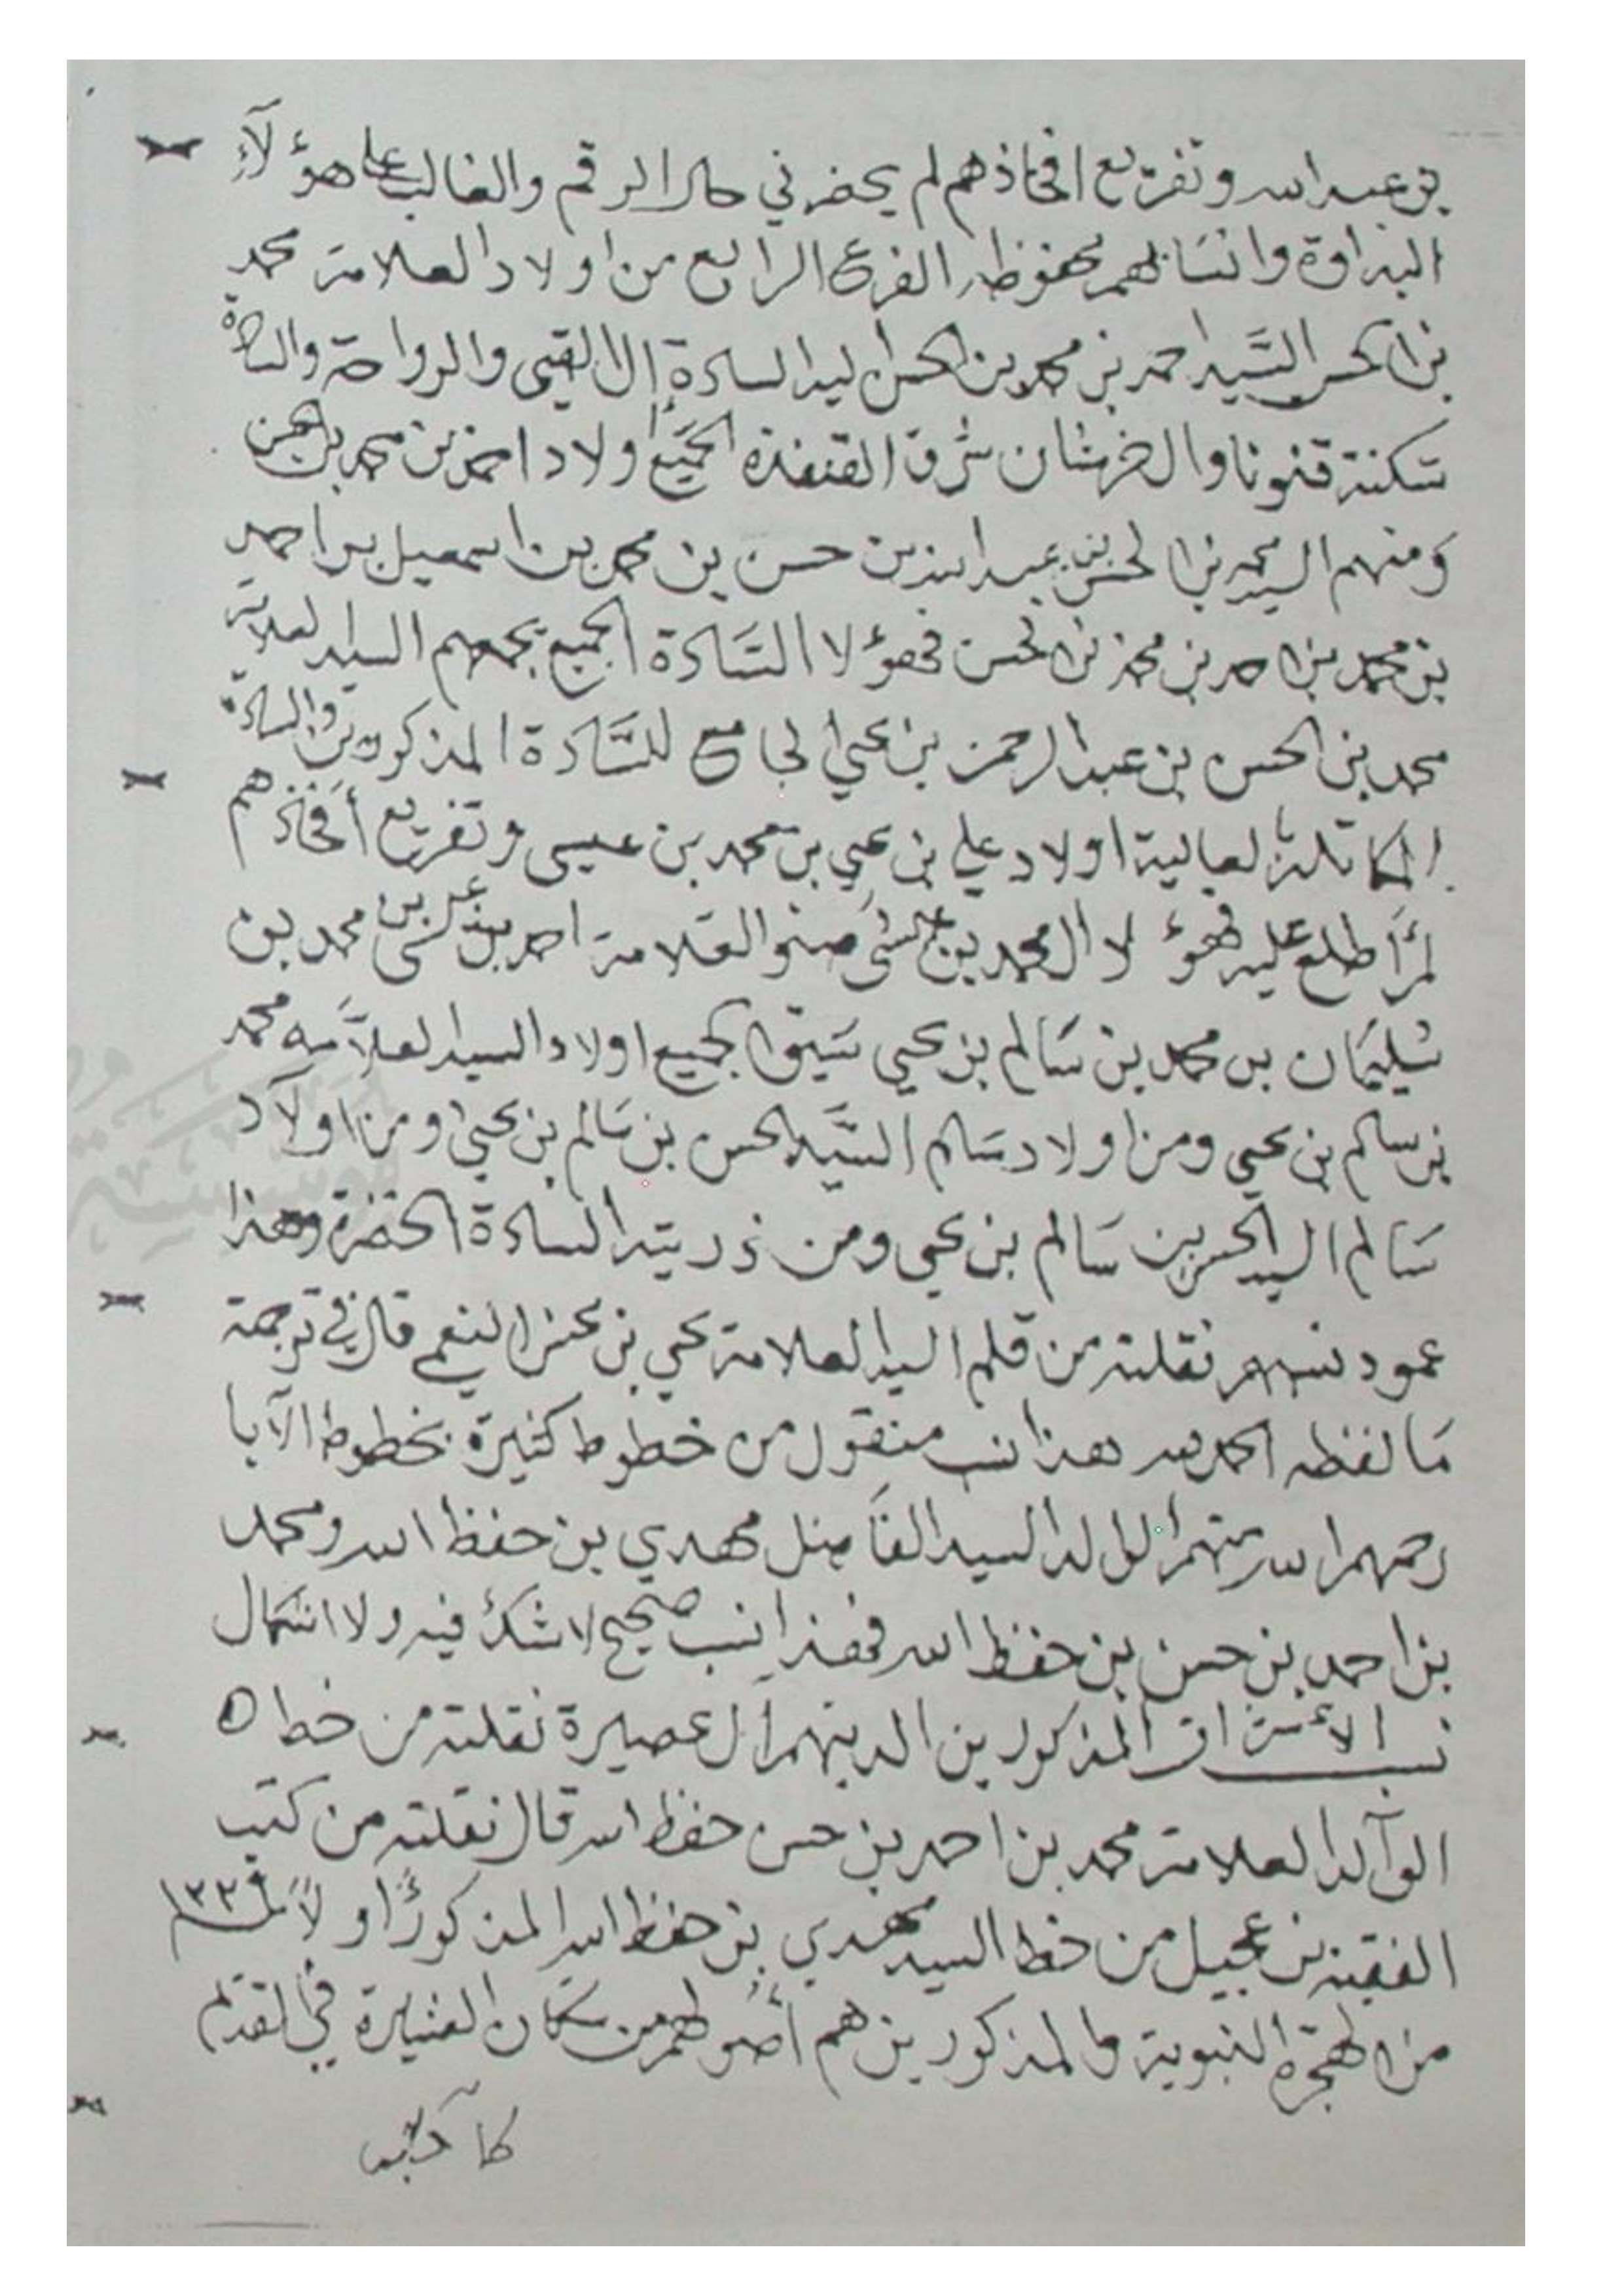 بن عبد الله وتفريع افخاذهم لم يحضرني حال الرقم والغالب على هؤلآء
البداوة وانسابهم محفوظه الفرع الرابع من اولاد العلامة محمد
بن الحسن السَّيد احمد بن محمد بن الحسن اليه السادة ال القيى والرواحة والسادة
سكنة قنونا وال خرشان شرق القنفذة الجميع اولاد احمد بن محمد بن الحسن
ومنهم السيد محمد بن الحسن بن عبد الله بن حسن بن محمد بن اسمعيل بن احمد
بن محمد بن احمد بن محمد بن الحسن فهؤلا السَّادة الجميع يجمعهم السيد العلامة
محمد بن الحسن بن عبد الرحمن بن يحيى الجامع للسَّادة المذكورين والسادة
العالية اولاد علي بن يحيى بن محمد بن عيسى وتفريع أفخاذهم
لم أطلع عليه فهؤلا ال محمد بن عيسى صنو العلامة احمد بن عيسى بن محمد بن
سُليمَان بن محمد بن سَالم بن يحيى الجميع اولاد السيد العلاَّمه محمد
بن سالم بن يحيى ومن اولاد سَالم السَّيد الحسن بن سَالم بن يحيى ومن اولآد
سَالم السيد الحسن بن سَالم بن يحيى ومن ذريته السادة وهذا
عمود نسبهم نقلته من قلم السيد العلامة يحيى بن محسن النعمي قال في ترجمة
مَا لفظه الحمد لله هذا نسب منقول من خطوط كثيرة بخطوط الآبا
رحمهم الله منهم الوالد السيد الفَاضل مهدي بن حفظ الله ومحمد
بن احمد بن حسن بن حفظ الله فهذا نسب صحيح لا شك فيه ولا اشكال
نسب الأشراف المذكورين الذينهم آل عصيرة نقلته من خط
الوآلد العلامة محمد بن احمد بن حسن حفظ الله قال نقلته من كتب
الفقيه بن عجيل من خط السيد مهدي بن حفظ الله المذكور أولاً
من الهجرة النبوية والمذكورين هم أصولهم من سكان العشيرة في القديم